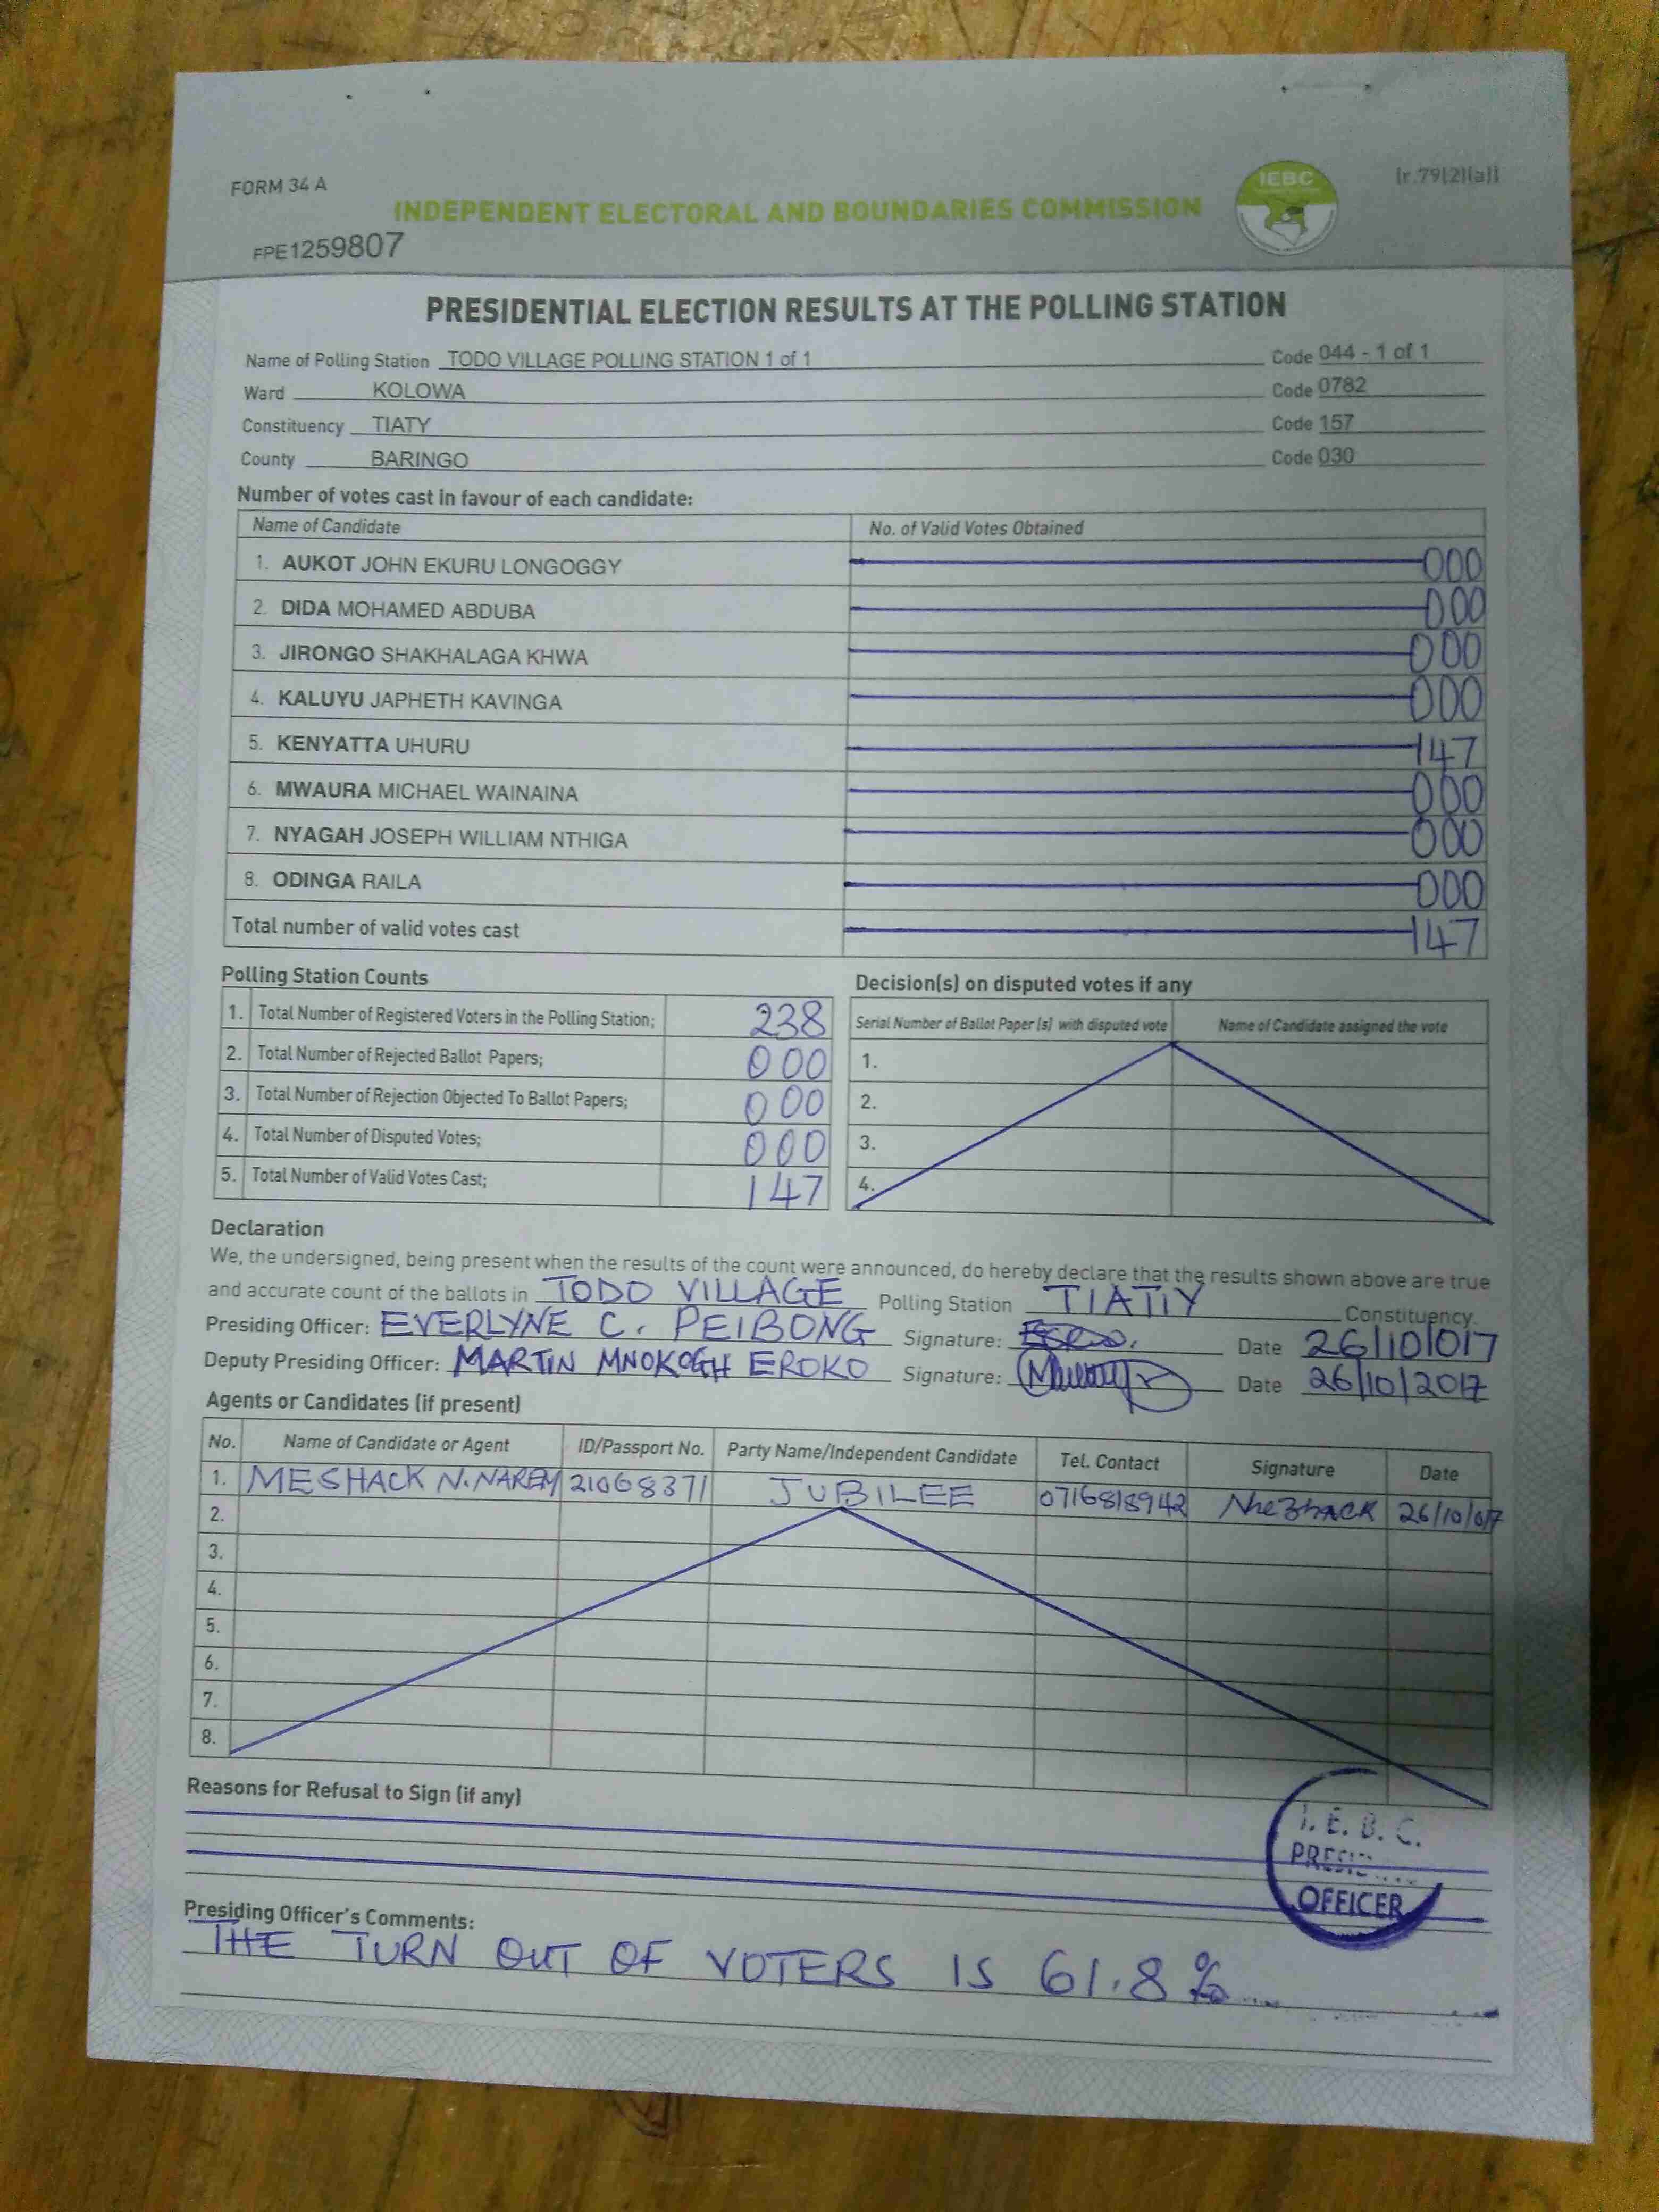 FORM 34 A
IEBC
[r.79[2][a]]
INDEPENDENT ELECTORAL AND BOUNDARIES COMMISSION
FPE1259807
PRESIDENTIAL ELECTION RESULTS AT THE POLLING STATION
Name of Polling Station TODO VILLAGE POLLING STATION 1 of 1 Code 044 - 1 of 1
Ward KOLOWA Code 0782
Constituency TIATY Code 157
County BARINGO Code 030
Number of votes cast in favour of each candidate:
Name of Candidate No. of Valid Votes Obtained
1. AUKOT JOHN EKURU LONGOGGY 000
2. DIDA MOHAMED ABDUBA 000
3. JIRONGO SHAKHALAGA KHWA 000
4. KALUYU JAPHETH KAVINGA 000
5. KENYATTA UHURU 147
6. MWAURA MICHAEL WAINAINA 000
7. NYAGAH JOSEPH WILLIAM NTHIGA 000
8. ODINGA RAILA 000
Total number of valid votes cast 147
Polling Station Counts
1. Total Number of Registered Voters in the Polling Station; 238
2. Total Number of Rejected Ballot Papers; 000
3. Total Number of Rejection Objected To Ballot Papers; 000
4. Total Number of Disputed Votes; 000
5. Total Number of Valid Votes Cast; 147
Decision(s) on disputed votes if any
Serial Number of Ballot Paper (s) with disputed vote Name of Candidate assigned the vote
1.
2.
3.
4.
Declaration
We, the undersigned, being present when the results of the count were announced, do hereby declare that the results shown above are true
and accurate count of the ballots in TODO VILLAGE Polling Station TIATIY Constituency.
Presiding Officer: EVERLYNE C. PEIBONG Signature: Date 26/10/017
Deputy Presiding Officer: MARTIN MNOKOGH EROKO Signature: Date 26/10/2017
Agents or Candidates (if present)
No. Name of Candidate or Agent ID/Passport No. Party Name/Independent Candidate Tel. Contact Signature Date
1. MESHACK N. NAREM 21068371 JUBILEE 0716818942 26/10/017
2.
3.
4.
5.
6.
7.
8.
Reasons for Refusal to Sign (if any)
I. E. B. C.
OFFICER
Presiding Officer's Comments:
THE TURN OUT OF VOTERS IS 61.8%